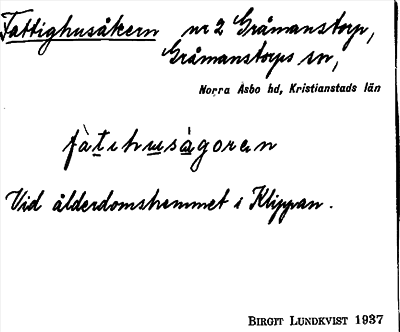 Fattighusåkern nr 2 Gråmanstorp,
Gråmanstorps sn,
Norra Åsbo hd, Kristianstads län
fàtihusågoren
Vid ålderdomshemmet i Klippan.
BIRGIT LUNDKVIST 1937